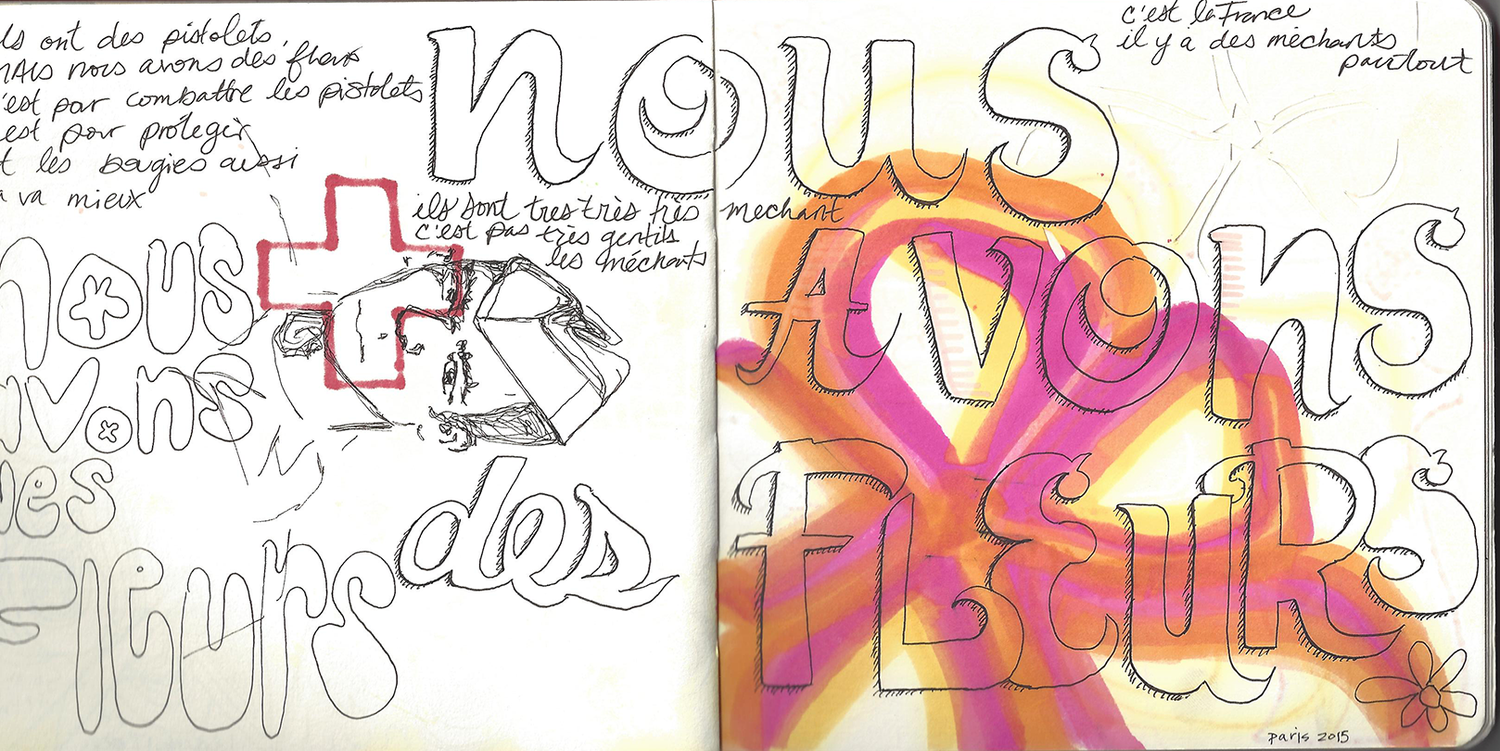 ils ont des pistolets,
mais nous avons des fleurs
c'est pour combattre les pistolets
c'est pour proteger
et les bougies aussi
ça va mieux
nous
avons
des
Fleurs
ils sont tres très très mechant
c'est pas très gentils
les méchants
des
nous
c'est la France
il y a des méchants
partout
AVONS
FLEURS
paris 2015